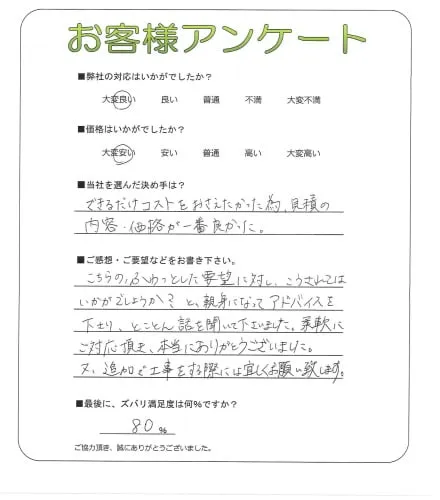 お客様アンケート
■弊社の対応はいかがでしたか？
大変良い 良い 普通 不満 大変不満
■価格はいかがでしたか？
大変安い 安い 普通 高い 大変高い
■当社を選んだ決め手は？
できるだけコストをおさえたかった為、見積の
内容・価格が一番良かった。
■ご感想・ご要望などをお書き下さい。
こちらの、ふわっとした要望に対し、こうされては
いかがでしょうか？と、親身になってアドバイスを
下さり、とことん話を聞いて下さいました。柔軟に
ご対応頂き、本当にありがとうございました。
又、追加で工事をする際には宜しくお願い致します。
■最後に、ズバリ満足度は何%ですか？
80%
ご協力頂き、誠にありがとうございました。